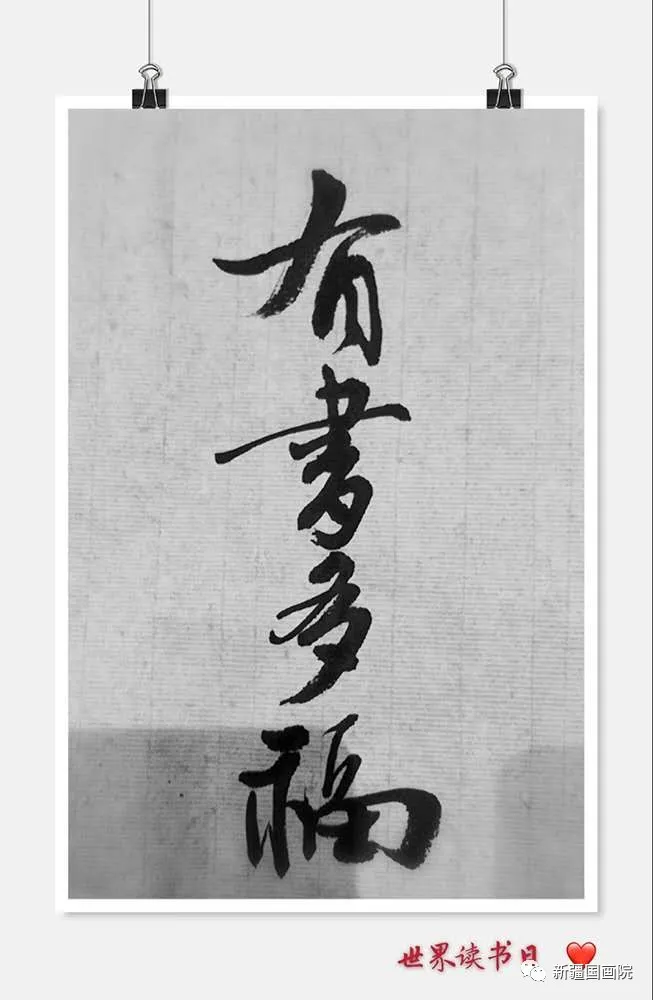 有書多福
世界读书日
新疆国画院